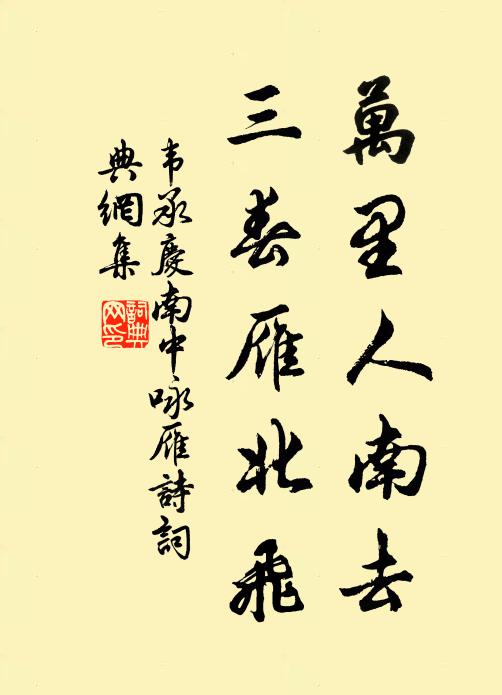 萬里人南去
三春雁北飛
韦承慶南中咏雁詩詞
典網集
詞典网印